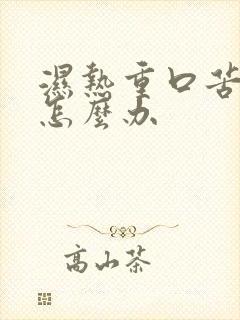 濕熱重口苦
怎麼办
高山茶